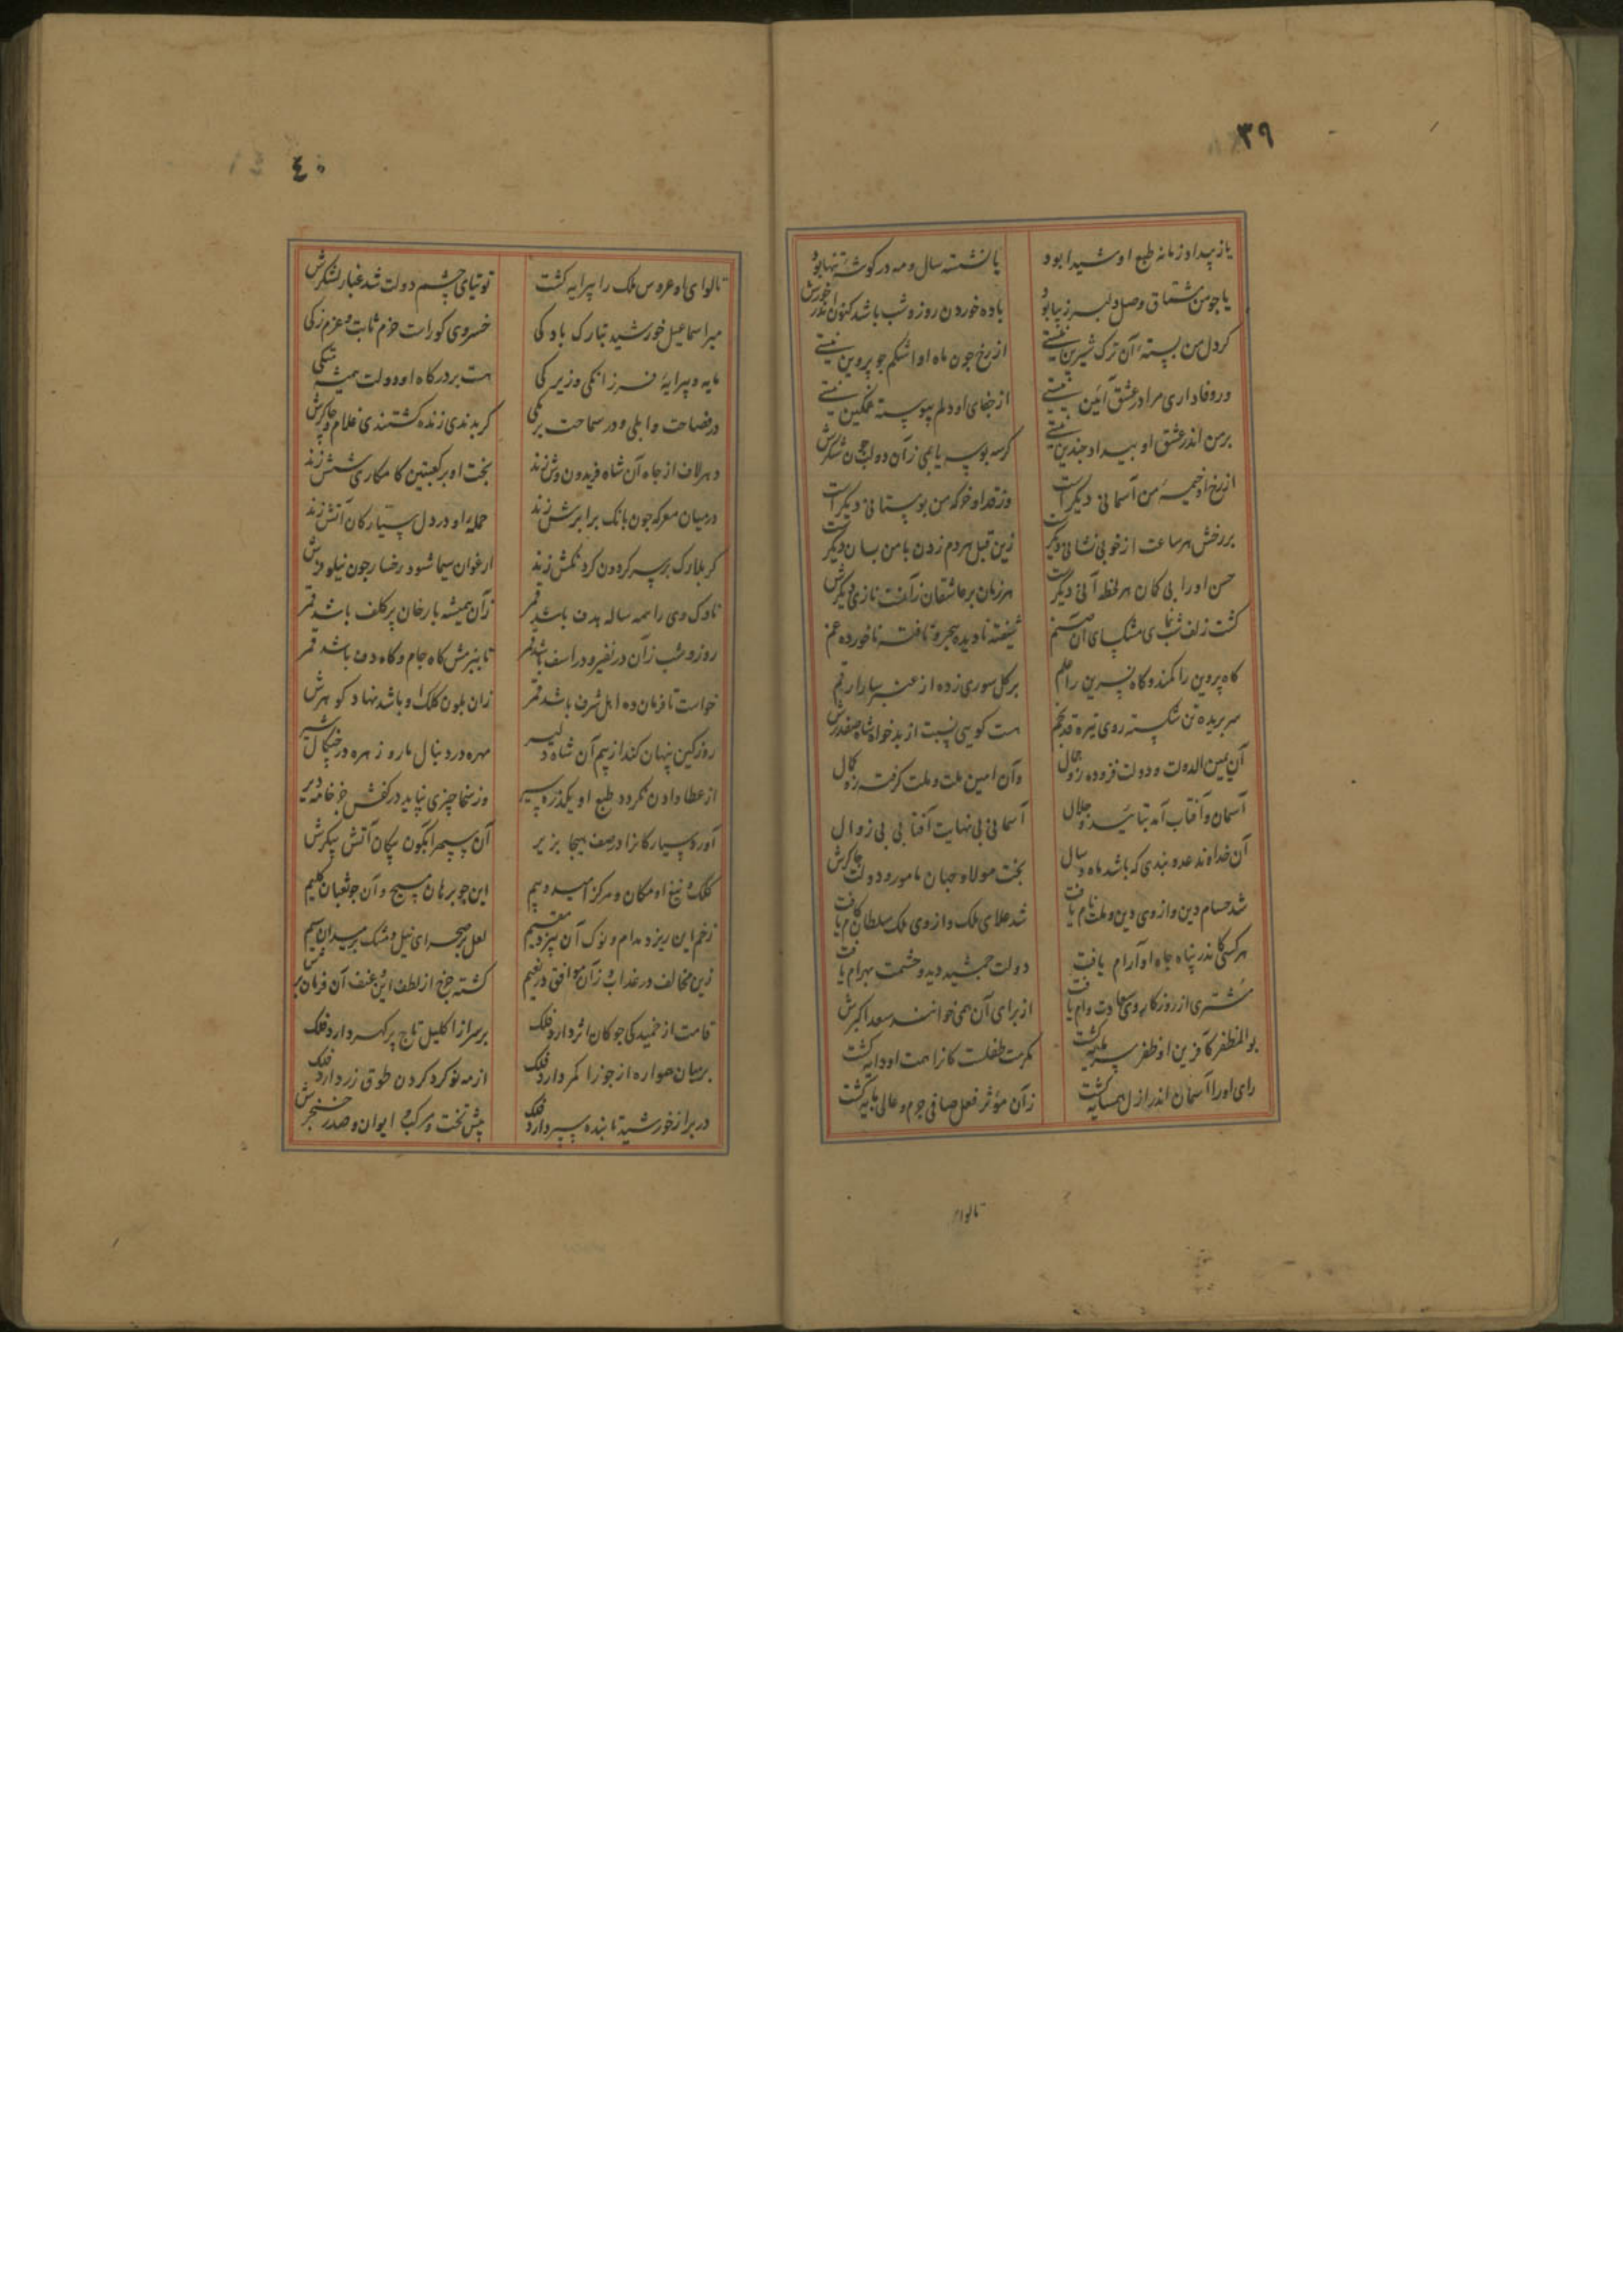 ٣٩
یا ز بیداد زمانه طبع او شیدا بود یا نشسته سال و مه در کوشهٔ تنها بود
یا جو من مشتاق وصل دلبر زیبا بود باده خوردن روز و شب باشد کنون اندر خورش
کر دل من بستهٔ آن ترک شیرین نیستی از رخ جون ماه او اشکم جو پروین نیستی
ور وفاداری مرا در عشق آئین نیستی از جفای او دلم پیوسته غمکین نیستی
بر من اندر عشق او بیداد جندین نیستی کر سه بوسه یابمی زآن دو لب جون شکرش
از رخ او خیمهٔ من آسمانی دیکر است وز قد او خرکه من بوستانی دیکر است
بر رخش هر ساعت از خوبی نشانی دیکر است زین قبل هر دم زدن با من بسان دیکر است
حسن او را بی کمان هر لحظه آنی دیکر است هر زمان بر عاشقان زآنست نازی دیکرش
کشت زلف شب نمای مشک سای آن صنم شیفته نادیده سحر و تافته ناخورده غم
کاه پروین را کمند و کاه نسرین را علم بر کل سوری زده از عنبر سارا رقم
سر بریده تن شکسته روی تیره قد بخم هست کویی نسبت از بدخواه شاه صفدرش
آن یمین الدولت و دولت فزوده زو جمال وآن امین ملت و ملت کرفته زو کمال
آسمان و آفتاب آمد بتائید و جلال آسمانی بی نهایت آفتابی بی زوال
آن خداوند عدو بندی که باشد ماه و سال بخت مولا و جهان مامور و دولت جاکرش
شد حسام دین و از وی دین و ملت نام یافت شد علای ملک و از وی ملک سلطان کام یافت
هر کسی کاندر پناه جاه او آرام یافت دولت جمشید دید و حشمت بهرام یافت
مشتری از روزکار وی سعادت وام یافت از برای آن همی خوانند سعد اکبرش
بوالمظفر کآفرین او ظفر پیرایه کشت مکرمت طفلست کانرا همت او دایه کشت
رای او را آسمان اندر ازل همسایه کشت زآن مؤثر فعل صافی جرم و عالی پایه کشت
تالوای
٤٠
تا لوای او عروس ملک را پیرایه کشت توتیای چشم دولت شد غبار لشکرش
میر اسماعیل خورشید تبارک باد کی خسروی کوراست حزم ثابت و عزم زکی
مایه و پیرایهٔ فرزانکی و زیرکی هست بر درکاه او دولت همیشه متکی
در فصاحت وابلی و در سماحت برمکی کر بدندی زنده کشتندی غلام و جاکرش
دهر لاف از جاه آن شاه فریدون وش زند بخت او بر کعبتین کامکاری شش زند
در میان معرکه جون بانک بر ابرش زند حملهٔ او در دل سیارکان آتش زند
کر بلارک بر سر کردون کردنکش زند ارغوان سیما شود رخسار جون نیلوفرش
ناوک وی را همه ساله هدف باشد قمر زآن همیشه با رخان پر کلف باشد قمر
روز و شب زآن در نفیر و در اسف باشد قمر تا ببزمش کاه جام و کاه دف باشد قمر
خواست تا فرمان ده اهل شرف باشد قمر زان بلون کلک او باشد نهاد کوهرش
روز کین پنهان کند از بیم آن شاه دلیر مهره در دنبال مار و زهره در جنکال شیر
از عطا دادن نکردد طبع او یکذره سیر وز سخا چیزی نپاید در کفش جز خامه دیر
آورد سیارکانرا در صف هیجا بزیر آن سپهر آبکون پیکان آتش پیکرش
کلک و تیغ او مکان و مرکز امید و بیم این جو برهان مسیح و آن جو ثعبان کلیم
زخم این ریزد مدام و نوک آن بیزد مقیم لعل بر صحرای نیل و مشک بر میدان سیم
زین مخالف در عذاب و زآن موافق در نعیم کشته جرخ از لطف این و عنف آن فرمان برش
قامت از خمیدکی جو کان اثر دارد فلک بر سر از اکلیل تاج پر کهر دارد فلک
بر میان همواره از جوزا کمر دارد فلک از مه نو کرد کردن طوق زر دارد فلک
در بر از خورشید تابنده سپر دارد فلک پیش تخت و مرکب و ایوان و صدر و خنجرش